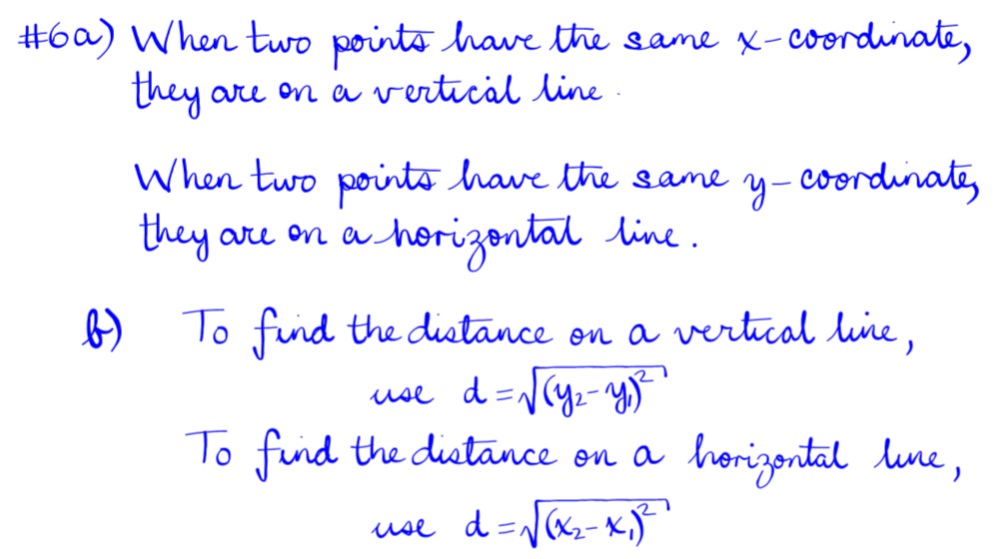 #6a) When two points have the same x-coordinate,
they are on a vertical line.
When two points have the same y-coordinate,
they are on a horizontal line.
b) To find the distance on a vertical line,
use d = √(y₂-y₁)²
To find the distance on a horizontal line,
use d = √(x₂-x₁)²